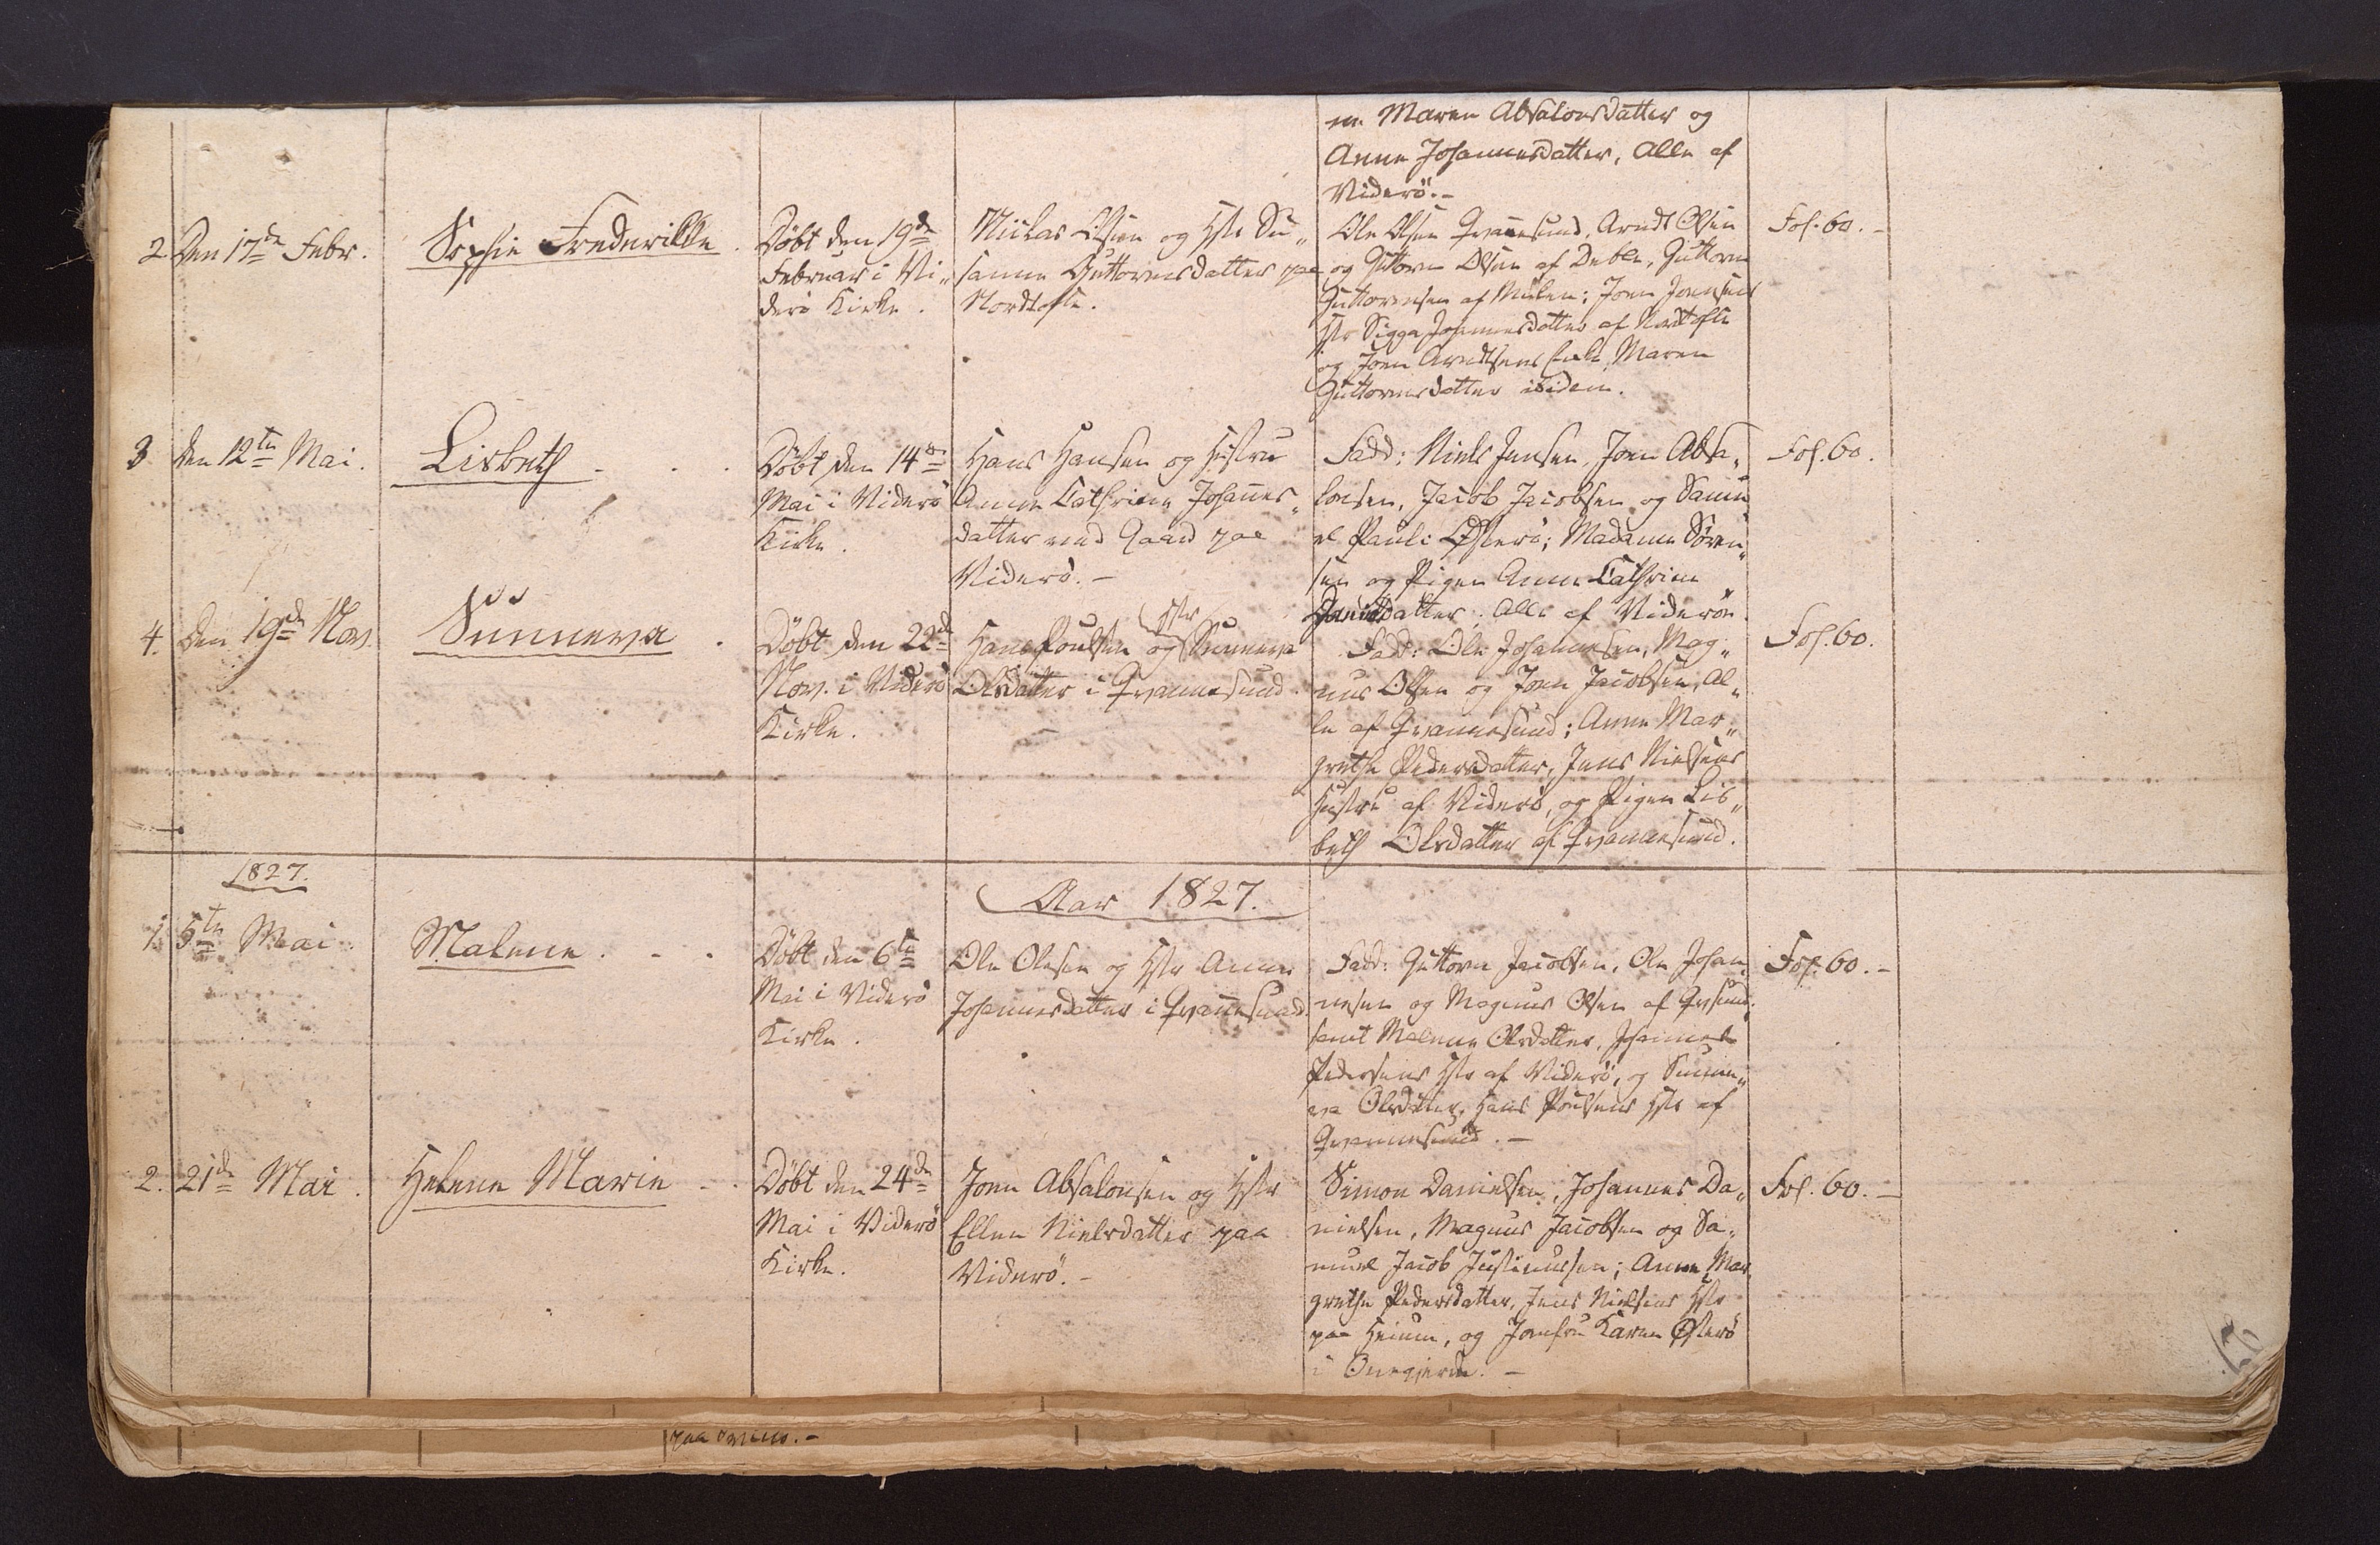 en Maren Absalonsdatter og
Anne Johannesdatter, Alle af
Viderö.-
2 Den 17de Febr.
Sophie Frederikke.
Döbt den 19de
Februar i Vi„
derö Kirke.
Niclas Olsen og Hstr Su„
sanne Guttormsdatter paa
Nordtofte.
Ole Olsen Qvannesund, Arndt Olsen
og Guttorm Olsen af Deble, Guttorm
Guttormsen af Mulen; Joen Joensens
Hstr Sigga Joennesdatter af Nordtofte
og Joen Arndtsens Enke Maren
Guttormsdatter ibidem.
Fol. 60.-
3 den 12te Mai.
Lisbeth - . .
Döbt den 14de
Mai i Viderö
Kirke.
Hans Hansen og Hustru
Anne Cathrine Johannes„
datter ved Gaard paa
Viderö.-
Fadd: Niels Jensen, Joen Absa„
lonsen, Jacob Jacobsen og Samu
el Paul: Österö; Madame Sören„
sen og Pigen Anne Cathrine
Danielsdatter; Alle af Viderön.
Fol. 60.
4. Den 19de Nov.
Sunneva .
Döbt den 22de
Nov. i Viderö
Kirke.
Hans Poulsen og Hstr Sunneva
Olsdatter i Qvannesund.
Fadd: Ole Johannesen, Mag„
nus Olsen og Joen Jacobsen, Al„
le af Qvannesund; Anne Mar„
grethe Pedersdatter, Jens Nielsens
Hustru af Viderö, og Pigen Lis„
beth Olsdatter af Qvannesund.
Fol. 60.
1827.
Aar 1827.
1. 5te Mai.
Malene . - .
Döbt den 6te
Mai i Viderö
Kirke.
Ole Olesen og Hstr Anne
Johannesdatter i Qvannesund.
Fadd: Guttorm Jacobsen, Ole Johan„
nesen og Magnus Olsen af Qvsund.
samt Malene Olsdatter, Johannes
Pedersens Hstr af Viderö, og Sunne„
va Olsdatter, Hans Poulsens Hstr af
Qvannesund.-
Fol. 60.-
2. 21de Mai.
Helene Marie - .
Döbt den 24de
Mai i Viderö
Kirke.
Joen Absalonsen og Hstr
Ellen Nielsdatter paa
Viderö.-
Simon Danielsen, Johannes Da„
nielsen, Magnus Jacobsen og Sa„
muel Jacob Justinussen; Anne Mar„
grethe Pedersdatter, Jens Nielsens Hstr
paa Heimm, og Jomfru Karen Österö
i Önegjerde.-
Fol. 60.-